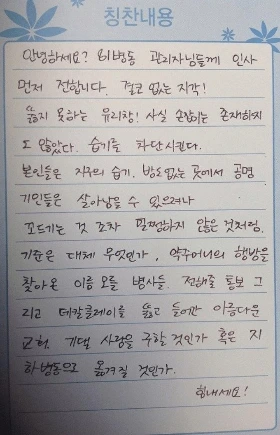 칭찬내용
안녕하세요? 외병동 관리자님들께 인사
먼저 전합니다. 결코 없는 지각!
뚫지 못하는 유리창! 사실 손잡이는 존재하지
도 않았다. 습기를 차단시킨다.
본인들은 지주의 습기. 방도 없는 곳에서 공명
기인들은 살아남을 수 있으려나
꼬드기는 것 조차 말짱하지 않은 것처럼,
기준은 대체 무엇인가, 약주머니의 행방을
찾아온 이름 모를 병사들. 전해줄 통보 그
리고 데칼클레이를 뚫고 들어간 아름다운
교회. 기껏 사람을 구할 것인가 혹은 지
하병동으로 옮겨질 것인가.
힘내세요!